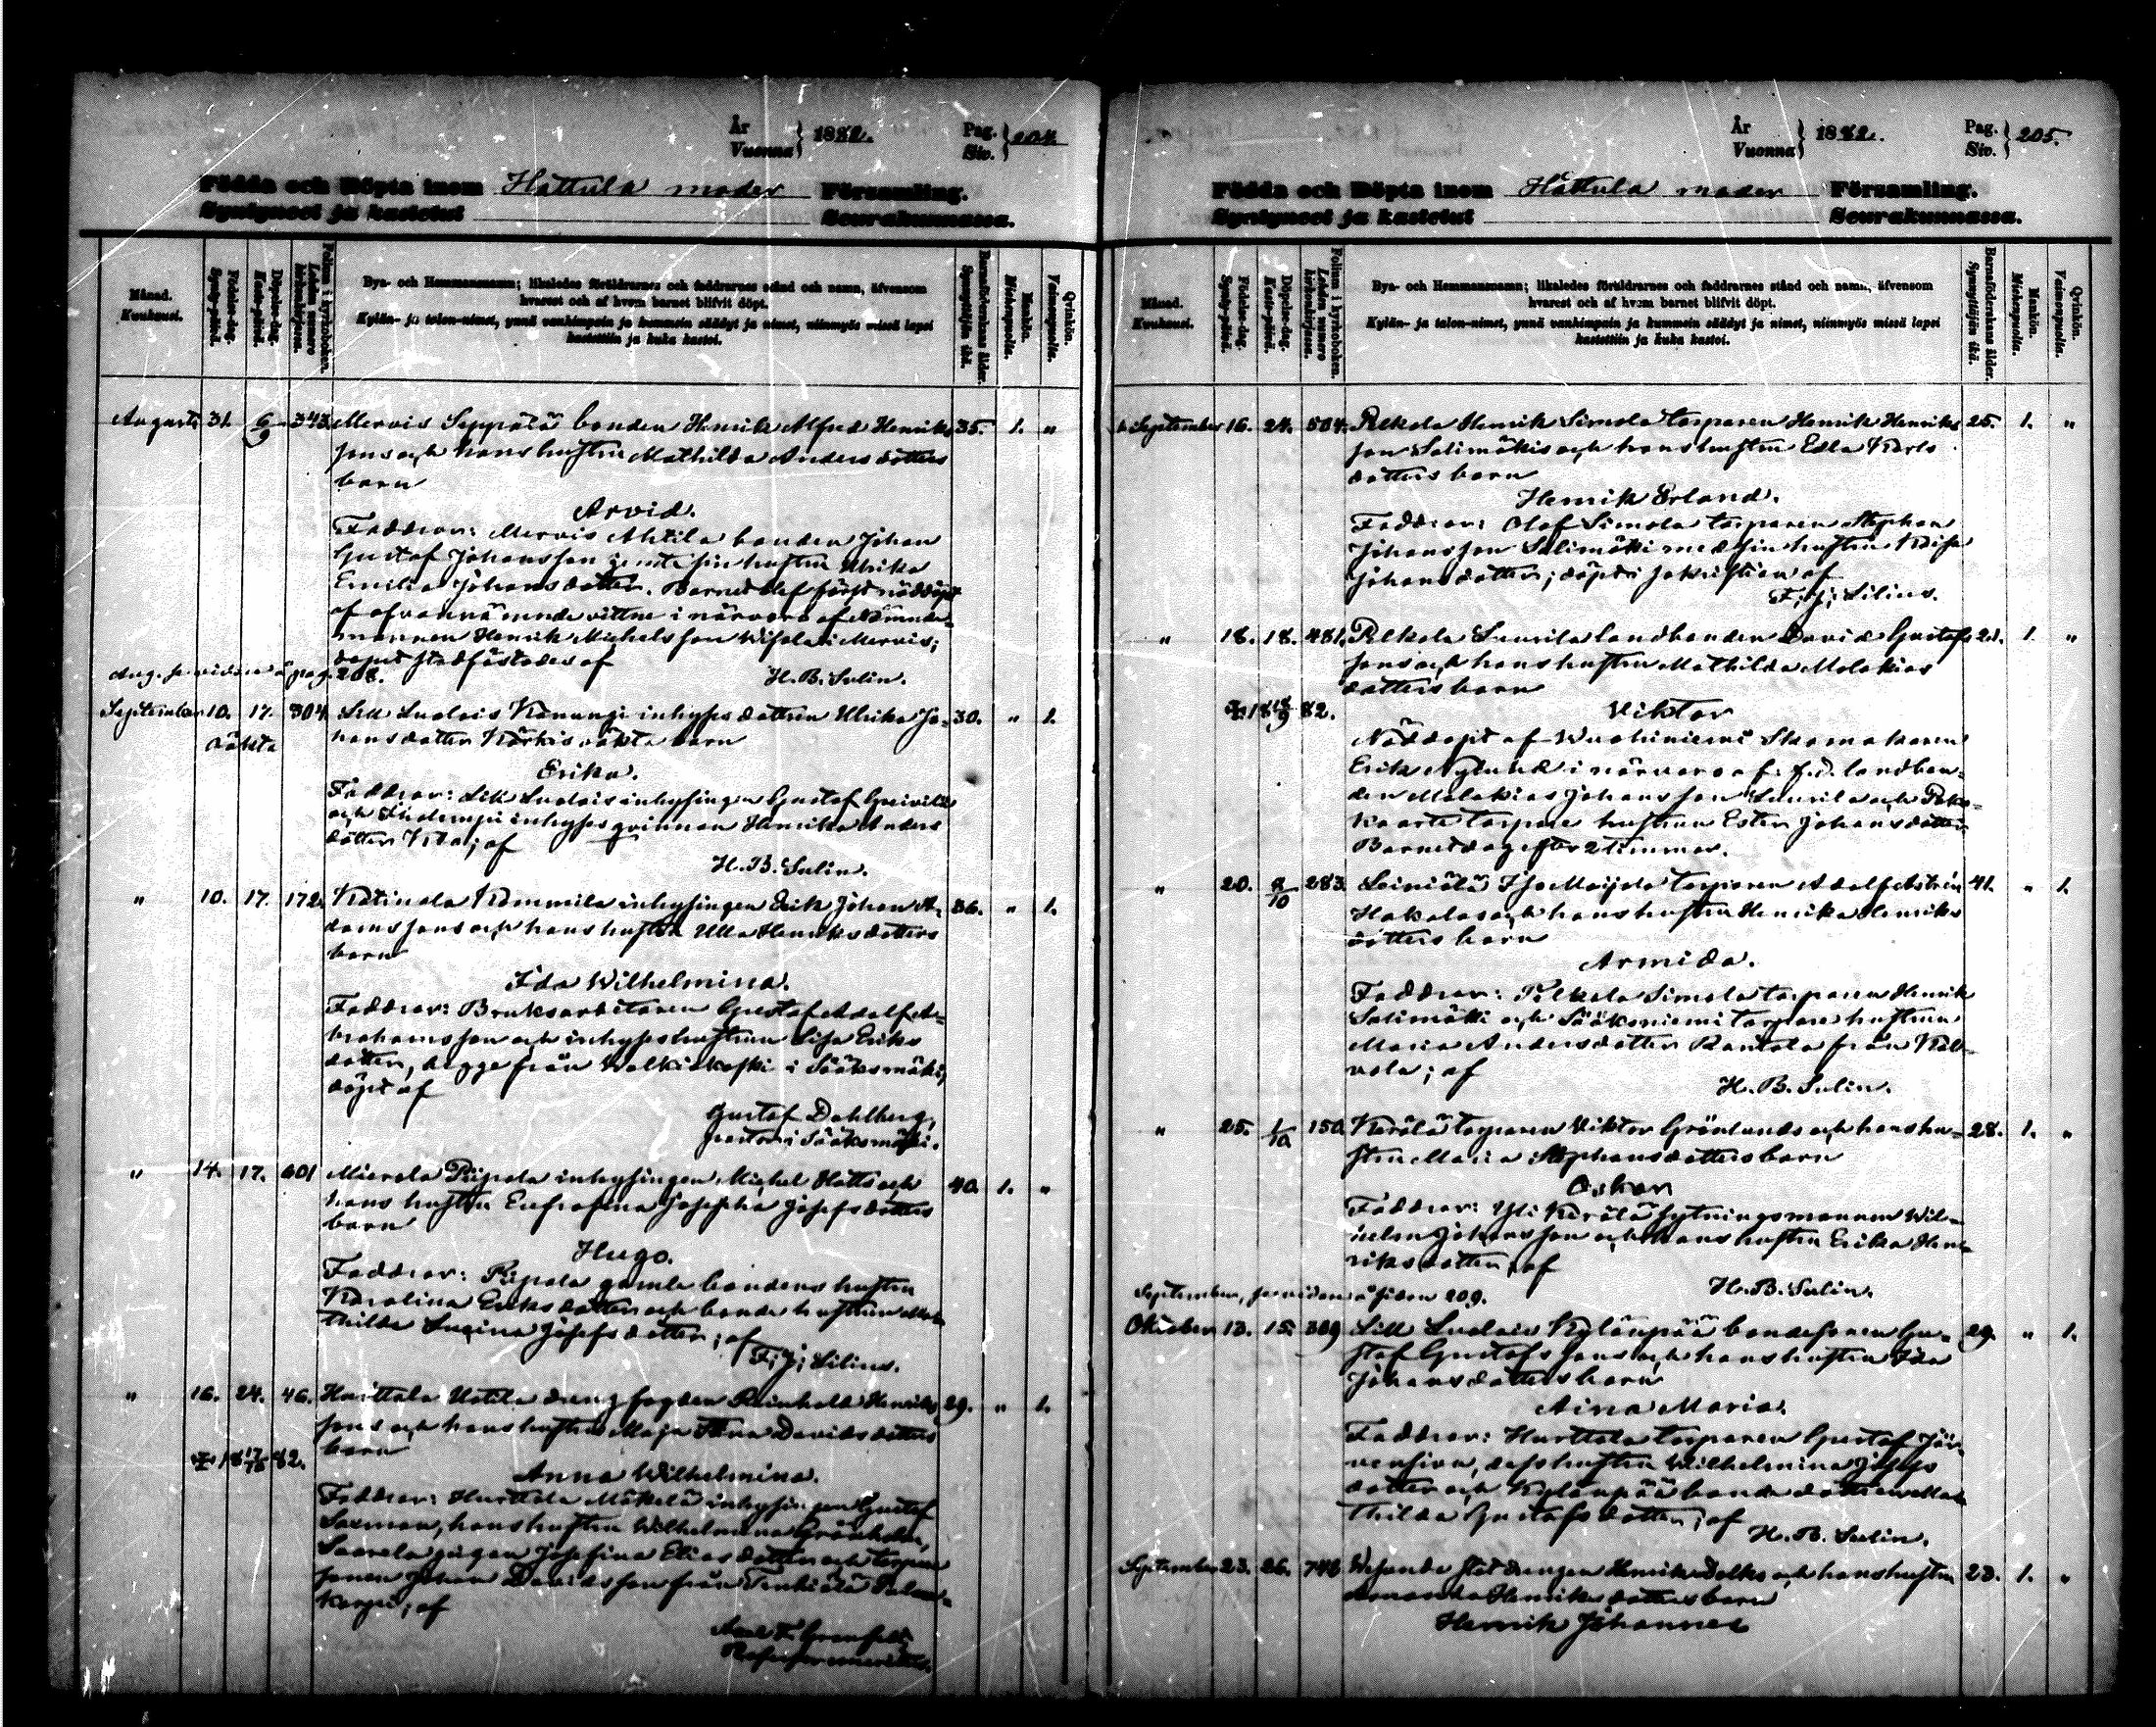 År
Vuonna } 1882.
Pag.
Siv. } 204
Födda och Döpta inom Hattula moder Församling.
Syntyneet ja kastetut Seurakunnassa.
Månad.
Kuukausi.
Födelse-dag.
Synty-päivä.
Döpelse-dag.
Kaste-päivä.
Folium i kyrkoboken.
Lehden numero kirkonkirjassa.
Bya- och Hemmansnamn; likaledes föräldrarnes och faddrarnes stånd och namn, äfvensom
hvarest och af hvem barnet blifvit döpt.
Kylän- ja talon-nimet, ynnä vanhimpain ja kummein säädyt ja nimet, niinmyös missä lapsi
kastettiin ja kuka kastoi.
Barnaföderskans ålder.
Synnyttäjän ikä.
Mankön.
Miehenpuolia.
Qvinkön.
Vaimonpuolia.
Augusti 31. 6/9 343 Mervis Seppälä bonden Henrik Alfred Henriks 35. 1. "
sons och hans hustru Mathilda Anders dotters
barn
Arvid.
Faddrar: Mervis Ahtila bonden Johan
Gustaf Johansson jemte sin hustru Ulrika
Emilia Johansdotter. Barnet blef först nöddöpt
af ofvannämnde vittne i närvaro af Nämnde-
mannen Henrik Michelsson Wisala i Mervis;
dopet stadfästades af
H. B. Sulin.
Aug. se vidare å pag. 208.
September 10. 17. 304 Lill Luolais Kanungi inhyses dottren Ulrika Jo- 30. " 1.
oäkta
hans dotter Kärkis oäkta barn
Erika.
Faddrar: Lill Luolais inhysingen Gustaf
och inhyses qvinnan Henrika Anders
dotter; af
H. B. Sulin.
" 10. 17. 172. Katinala Kammila inhysingen Erik Johan A- 36. " 1.
damssons och hans hustru Ulla Henriksdotters
barn
Ida Wilhelmina.
Faddrar: Bruksarbetaren Gustaf Adolf A-
brahamsson och inhyses hustrun Lisa Eriks
dotter, begge från Walkiakoski i Sääksmäki;
döpt af
Gustaf Dahlberg,
pastor i Sääksmäki.
" 14. 17. 601 Mierola Piipola inhysingen Michel Hatts och 40. 1. "
hans hustru Eufrosina Josefina Josefsdotters
barn
Hugo.
Faddrar: Piipola gamle bondens hustru
Karolina Eriksdotter och bonde hustrun Mat-
thilda Lucina Josefsdotter; af
F. J. Lilius.
" 16. 24. 46. Hurttala Uotila drengfogden Reinhold Henriks 29. " 1.
sons och hans hustru Maja Stina Davidsdotters
barn
Anna Wilhelmina.
Faddrar: Hurttala Mäkelä inhysingen Gustaf
Saxman, hans hustru Wilhelmina
Saarela pigan Josefina Eliasdotter och torpare
sonen Johan Davidsson från Tenhiälä
af
År
Vuonna } 1882.
Pag.
Siv. } 205.
Födda och Döpta inom Hattula moder Församling.
Syntyneet ja kastetut Seurakunnassa.
Månad.
Kuukausi.
Födelse-dag.
Synty-päivä.
Döpelse-dag.
Kaste-päivä.
Folium i kyrkoboken.
Lehden numero kirkonkirjassa.
Bya- och Hemmansnamn; likaledes föräldrarnes och faddrarnes stånd och namn, äfvensom
hvarest och af hvem barnet blifvit döpt.
Kylän- ja talon-nimet, ynnä vanhimpain ja kummein säädyt ja nimet, niinmyös missä lapsi
kastettiin ja kuka kastoi.
Barnaföderskans ålder.
Synnyttäjän ikä.
Mankön.
Miehenpuolia.
Qvinkön.
Vaimonpuolia.
September 16. 24. 504. Pelkola Henrik Simola torparen Henrik Henriks 25. 1. "
son Salimäkis och hans hustru Edla Karls
dotters barn
Henrik Erland.
Faddrar: Olof Simola torparen Stephan
Johansson Salimäki med sin hustru Kaisa
Johansdotter; döpt i sakristian af
F. J. Lilius.
" 18. 18. 481. Pelkola Laurila landbonden David Gustafs 1. "
sons och hans hustru Mathilda Malakias
dotters barn
Viktor
Nöddöpt af Wuohiniemi Skomakaren
Erik Nylund i närvaro af f. d. landbon-
den Malakias Johansson Laurila och
torpare hustrun Ester Johansdotter.
Barnet dog efter 2 timmar.
" 20. 8/10 283 Leiniälä Iso Maijala torparen Adolf 41. " 1.
Hakalas och hans hustru Henrika Henriks
dotters barn
Armida.
Faddrar: Pelkola Simola torparen Henrik
Salimäki och Sääksniemi torpare hustrun
Maria Andersdotter Rantala från Kal-
vola; af
H. B. Sulin.
" 25. 1/10 150 Kerälä torparen Viktor Grönlunds och hans hu- 28. 1. "
stru Maria Stephansdotters barn
Oskar
Faddrar: Yli Kerälä sytningsmannen Wil-
helm Johansson och hans hustru Erika Hen-
riksdotter; af
H. B. Sulin.
September, se vidare å sidan 209.
Oktober 13. 15. 309 Lill Luolais Kylänpää bondesonen Gu- 29. " 1.
staf Gustafssons och hans hustru Ida
Johansdotters barn
Aina Maria.
Faddrar: Hurttala torparen Gustaf Jär-
vensivu, dess hustru Wilhelmina Josefs
dotter och Kylänpää bonde dottren Mat-
thilda Gustafsdotter; af
H. B. Sulin.
September 23. 26. 746 Wesunda statdrengen Henrik och hans hustru 23. 1. "
Amanda Henriksdotters barn
Henrik Johannes